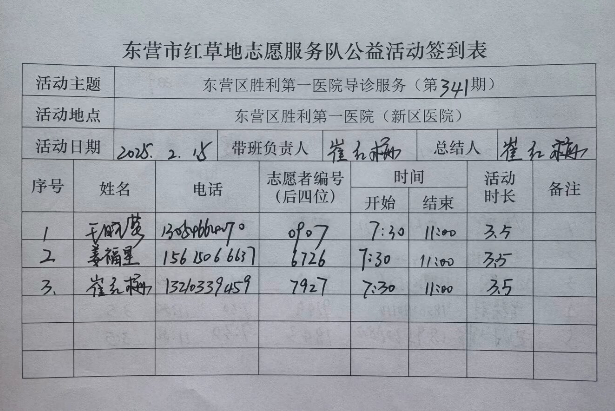 东营市红草地志愿服务队公益活动签到表
活动主题 东营区胜利第一医院导诊服务（第341期）
活动地点 东营区胜利第一医院（新区医院）
活动日期 2025. 2. 15 带班负责人 崔红梅 总结人 崔红梅
序号 姓名 电话 志愿者编号（后四位） 时间 开始 结束 活动时长 备注
1 0907 7:30 11:00 3.5
2. 姜福星 15615066637 6726 7:30 11:00 3.5
3. 崔红梅 13210339459 7927 7:30 11:00 3.5